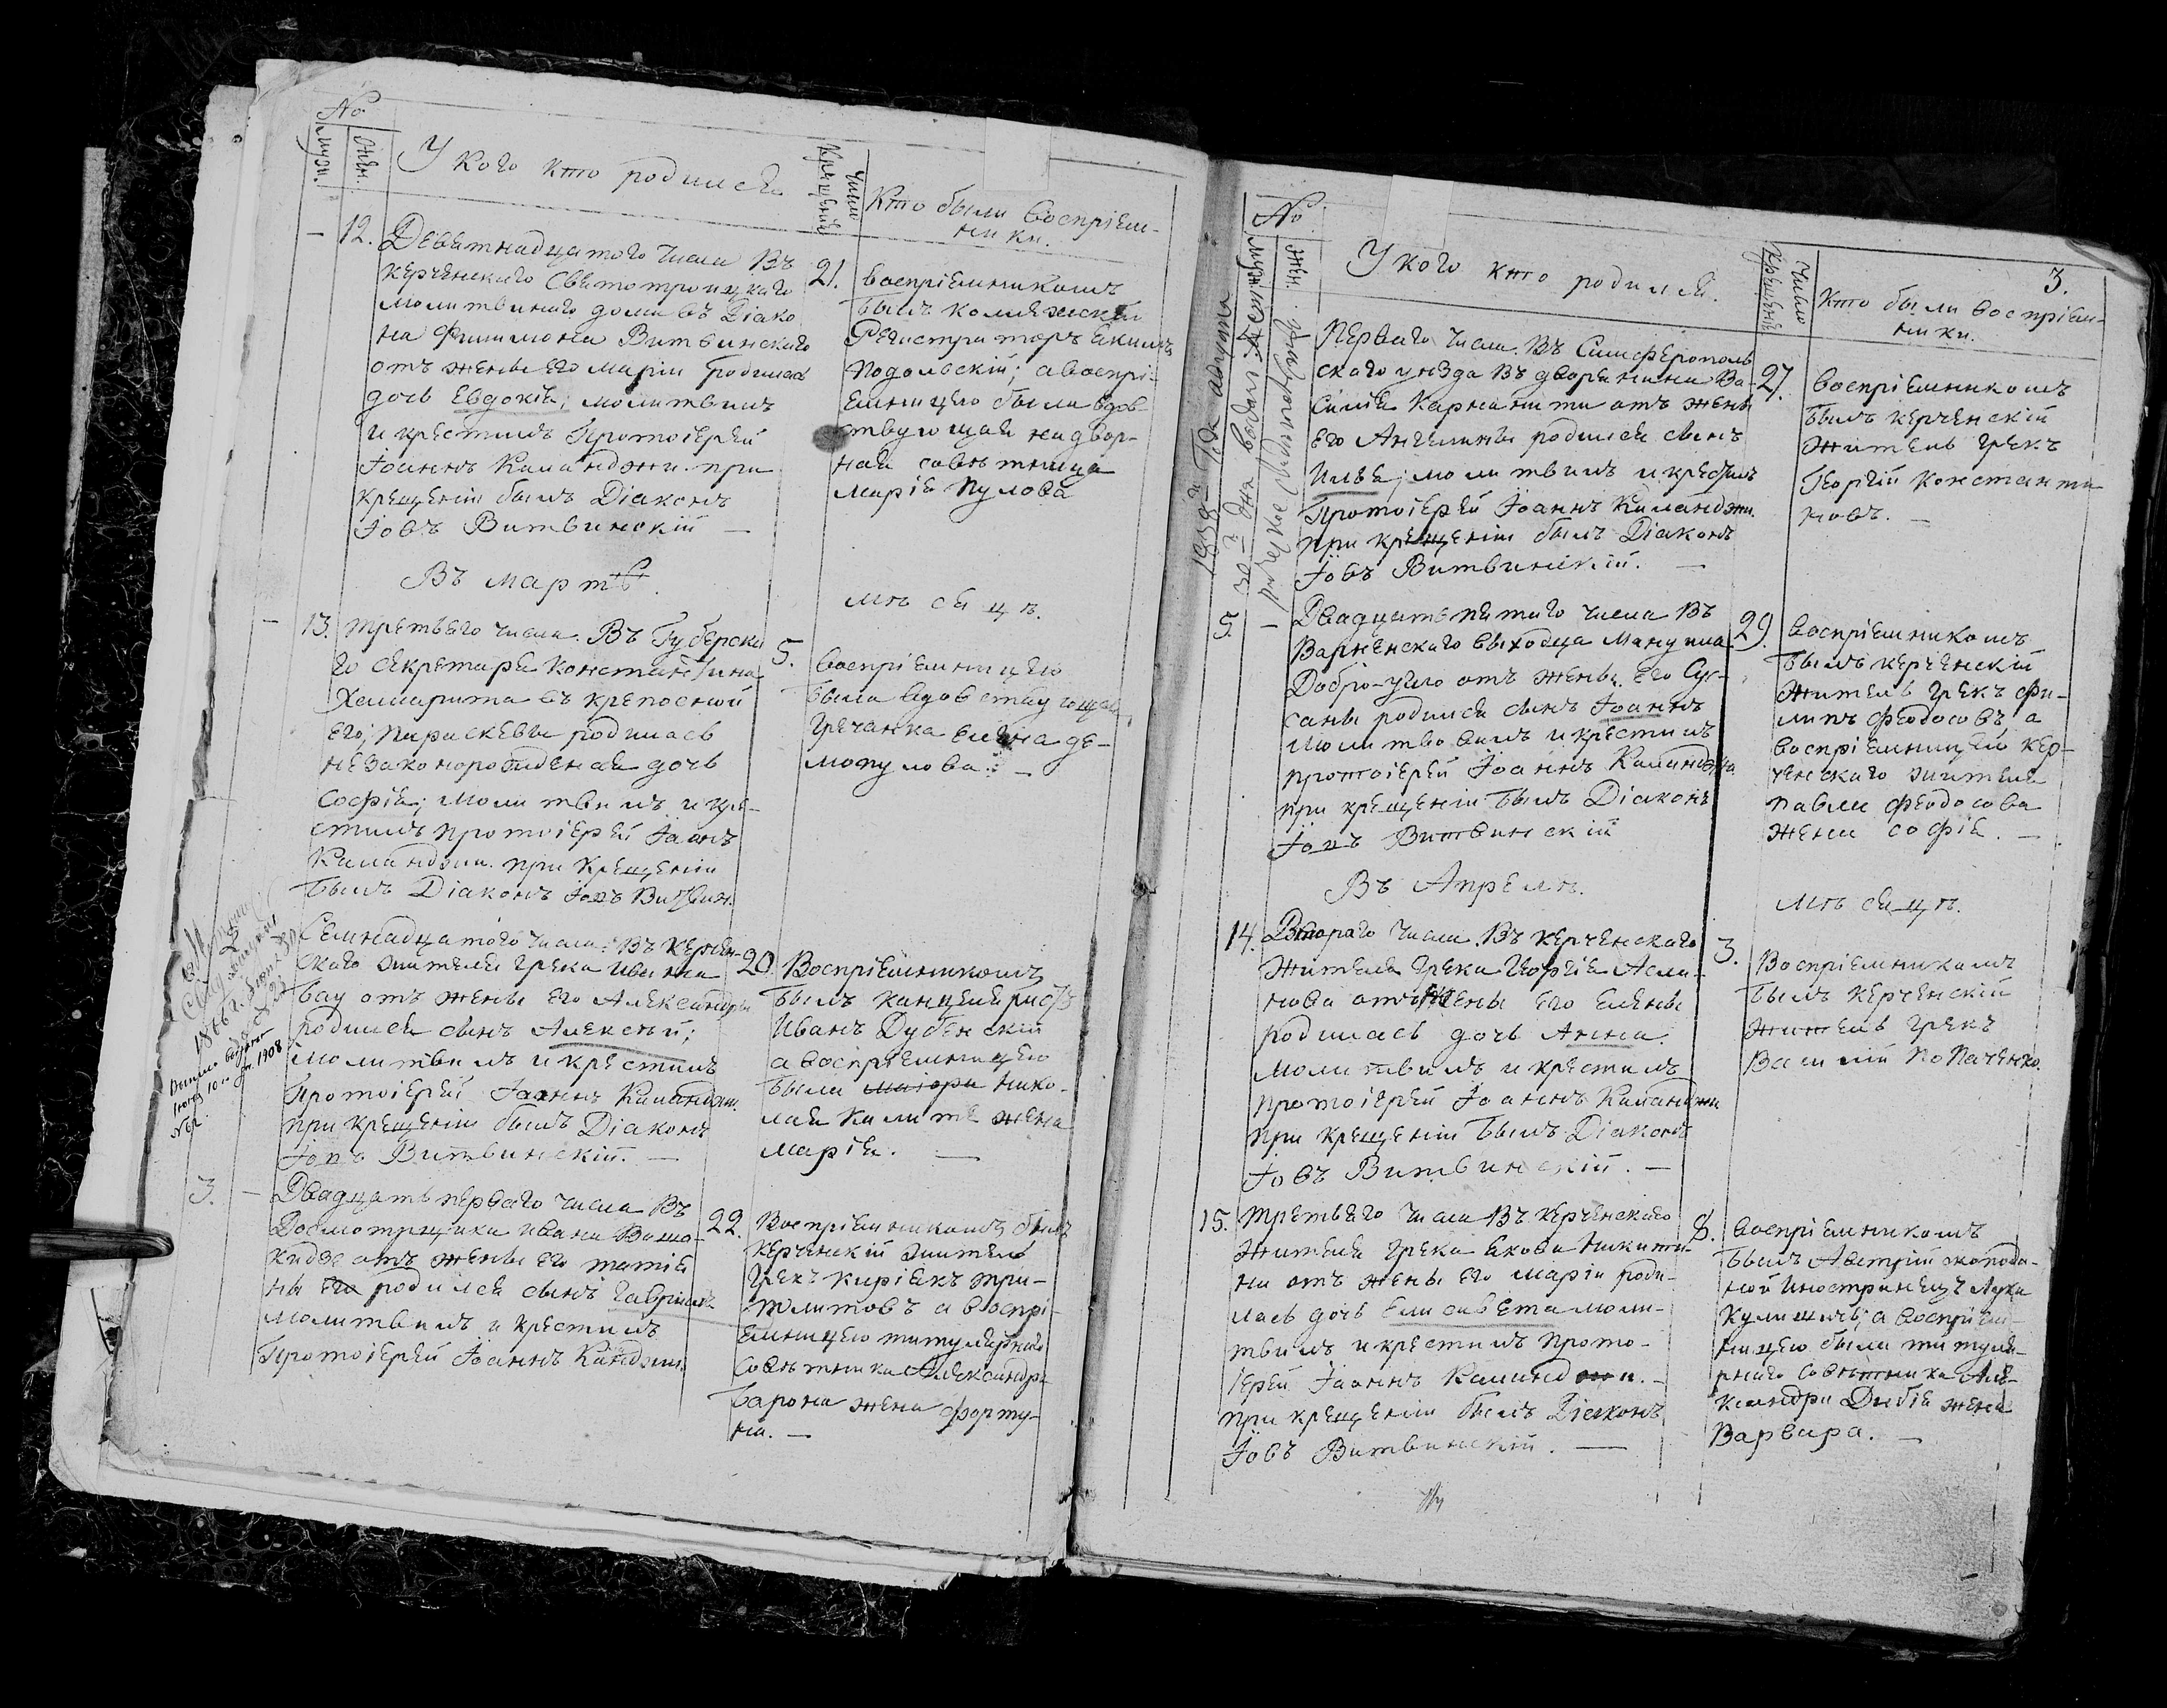 №
муж.
жен.
У кого кто родился
число
крещенія
Кто были воспріем-
ники.
12.
Девятнадцатого числа въ
керченскаго Святотроицкаго
молитвинаго дома въ Діако
на Филимона Витвинскаго
отъ жены его маріи родилась
дочь Евдокія; молитвилъ
и крестилъ Протоіерей
Іоаннъ Каланджи. при
крещеніи былъ Діаконъ
Іовъ Витвинскій —
21.
воспріемникомъ
былъ коллежскій
Регистраторъ Екимъ
Подольскій; а воспрі-
емницею была вдов-
ствующая надвор-
ная совѣтница
Марія Пулова
Въ мартѣ
мѣсяцѣ.
13.
третьяго числа. Въ Губерска
го секретаря Константина
Хамарита въ крепосной
его; параскевы родилась
незаконорожденая дочь
Софія; молитвилъ и кре-
стилъ протоіерей Іоанъ
Каланджи. при крещеніи
былъ Діаконъ Іовъ Витвин.
5.
воспріемницею
была вдовствующая
гречанка Елена де-
мопулова. —
Семнадцатого числа. Въ керчен-
скаго жителя грека ивана
вау отъ жены его Александры
родился сынъ Алексѣй;
молитвилъ и крестилъ
Протоіерей Іоаннъ Каландж.
при крещеніи былъ Діаконъ
Іовъ Витвинскій. —
20.
Воспріемникомъ
былъ канцеляристъ
Иванъ Дубенскій
а воспріемницею
была маіора Нико-
лая Калите жена
марія. —
1866 г.
1908
3. —
Двадцать перваго числа Въ
Досмотрщика ивана
отъ жены его татія
ны его родился сынъ Гавріилъ
молитвилъ и крестилъ
Протоіерей Іоаннъ Канджи.
22.
Воспріемникомъ былъ
керченскій житель
грекъ киріякъ три-
политовъ а воспрі-
емницею титулярнаго
совѣтника Александра
барона жена форту-
на. —
3.
№
муж.
жен.
У кого кто родился.
Число
крещенія
Кто были воспріем-
ники.
Перваго числа. Въ Симферополь
скаго уѣзда въ дворянина Ва-
силія Карнанити отъ жены
его Ангелины родился сынъ
Илья; молитвилъ и крестилъ
Протоіерей Іоаннъ Каланджи.
при крещеніи былъ Діаконъ
Іовъ Витвинскій. —
27.
воспріемникомъ
былъ керченскій
житель грекъ
Георгій Константи
новъ. —
5. —
Двадцать пятаго числа Въ
Варненскаго выходца Мануила
Добро-уло отъ жены его Сус-
саны родился сынъ Іоаннъ
молитвовилъ и крестилъ
протоіерей Іоаннъ Каланджи
при крещеніи былъ Діаконъ
Іовъ Витвинскій
29.
воспріемникомъ
былъ керченскій
житель грекъ фи-
липъ Феодосовъ, а
воспріемницей кер-
ченскаго жителя
павла феодосова
жена софія. —
Въ Апрелѣ.
мѣсяцѣ.
14.
Втораго числа. Въ керченскаго
жителя грека Георгія Асла-
нова отъ жены его Елены
родилась дочь Анна.
молитвилъ и крестилъ
протоіерей Іоаннъ Каланджи
при крещеніи былъ Діаконъ
Іовъ Витвинскій. —
3.
Воспріемникомъ
былъ керченскій
житель грекъ
Василій Попаченко.
15.
третьяго числа Въ керченскаго
жителя грека Якова Никити-
на отъ жены его маріи роди-
лась дочь Елисавета моли-
твилъ и крестилъ прото-
іерей Іоаннъ Каланджи. —
при крещеніи былъ Діаконъ
Іовъ Витвинскій. —
8.
воспріемникомъ
былъ Австрійскопода-
ной Иностранецъ Лука
Кулишичъ; а воспріем-
ницею была титуля-
рнаго совѣтника Але-
ксандра Дабія жена
Варвара. —